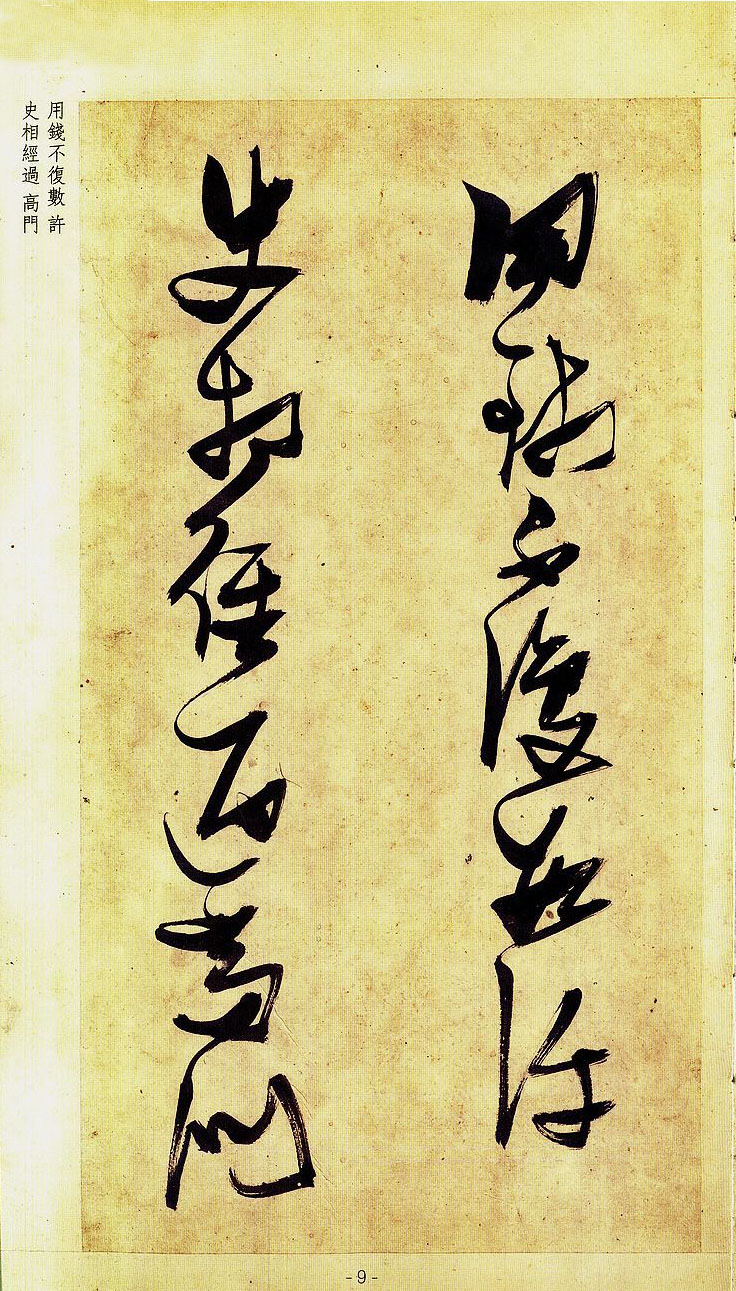 用錢不復數許
史相經過高門
用錢不復數 許
史相經過 高門
-9-